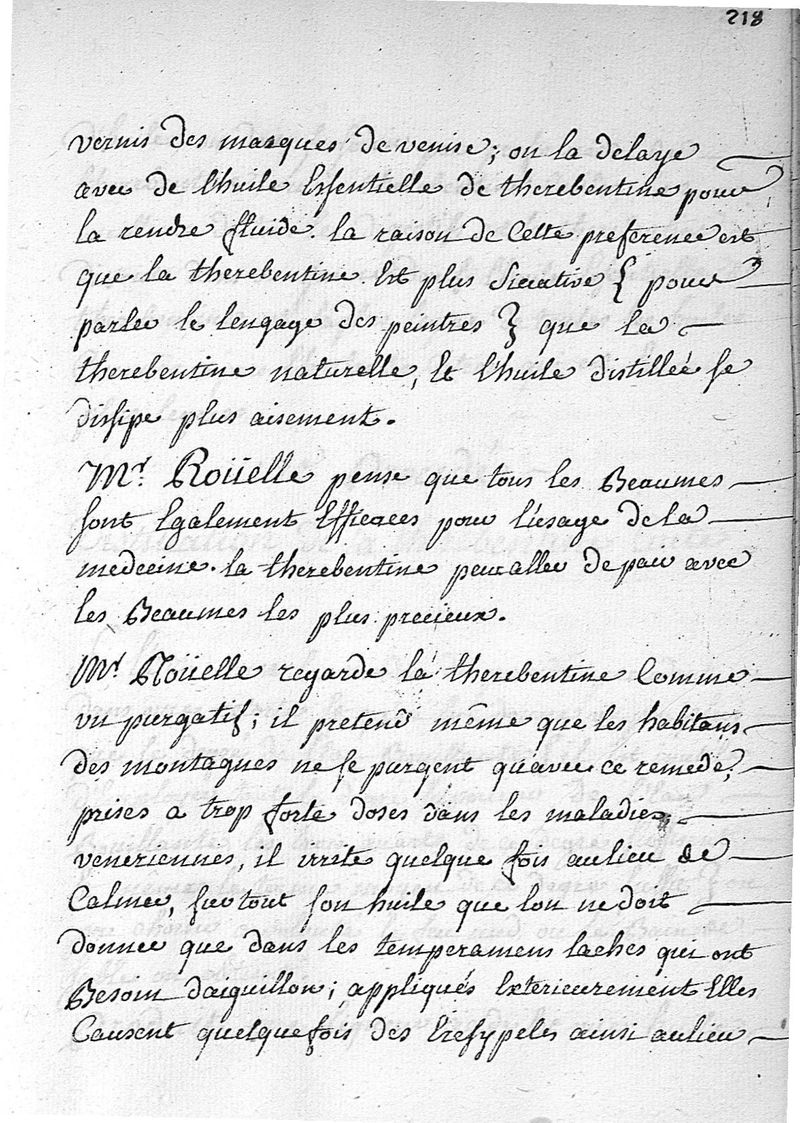 218
vernis des masques de venise; on la delaye
avec de l'huile Essentielle de therebentine pour
la rendre fluide. la raison de Cette preference est
que la therebentine Est plus Siccative { pour
parler le lengage des peintres } que la
therebentine naturelle, Et l'huile distillée se
dissipe plus aisement.
Mr. Roüelle pense que tous les Beaumes
sont Egalement Efficaces pour l'usage de la
medecine. la therebentine peut aller de pair avec
les Beaumes les plus precieux.
Mr. Roüelle regarde la therebentine Comme
un purgatif; il pretend même que les habitans
des montagnes ne se purgent qu'avec ce remede,
prises a trop forte doses dans les maladies
veneriennes, il irrite quelque fois au lieu de
Calmer, surtout son huile que lon ne doit
donner que dans les temperamens laches qui ont
Besoin daiguillon; appliqués Exterieurement Elles
Causent quelquefois des Eresypeles ainsi au lieu